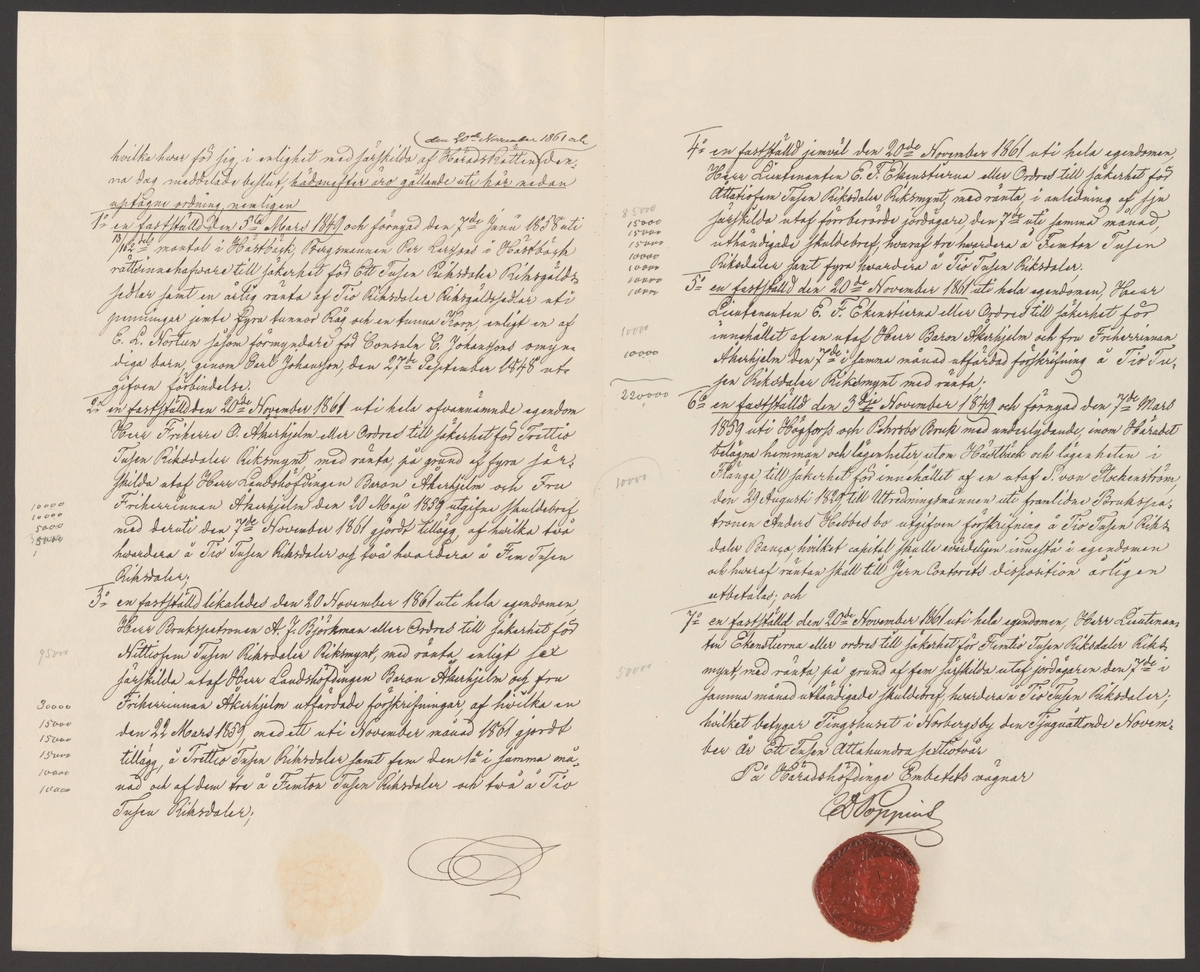 den 20de November 1861 och
hvilka hvar för sig, i enlighet med särskilda af HäradsRätten den-
na dag meddelade beslut hädanefter äro gällande uti här nedan
uptagne ordning, nemligen
1o en fastställd den 5te Mars 1849 och förnyad den 7de Junii 1858 uti
mantal i Hästbäck Bergsmannen Per Larsson i Hästbäck
rättinnehafvare till säkerhet för Ett Tusen Riksdaler Riksgälds-
sedlar samt en årlig ränta af Tio Riksdaler Riksgäldssedlar uti
penningar jemte Fyra tunnor Råg och en tunna Korn, enligt en af
E. L. Norlin såsom förmyndare för Consuln C. Johanssons omyn-
diga barn, genom Carl Johansson, den 27de September 1848 ut-
gifven förbindelse.
2o en fastställd den 20de November 1861 uti hela ofvannämnde egendom
Herr Friherre O. Åkerhjelm eller Ordres till säkerhet för Trettio
Tusen Riksdaler Riksmynt med ränta, på grund af fyra sär-
skilda utaf Herr Landshöfdingen Baron Åkerhjelm och Fru
Friherrinnan Åkerhjelm den 20 Maji 1859 utgifne skuldebref
med deruti den 7de November 1861 gjordt tillägg, af hvilka två
hvardera å Tio Tusen Riksdaler och två hvardera å Fem Tusen
Riksdaler;
10000
10000
5000
5000
3o en fastställd likaledes den 20 November 1861 uti hela egendomen,
Herr Brukspatronen A. J. Björkman eller Ordres till säkerhet för
Nittiofem Tusen Riksdaler Riksmynt, med ränta enligt sex
särskilda utaf Herr Landshöfdingen Baron Åkerhjelm och fru
Friherrinnan Åkerhjelm utfärdade förskrifningar, af hvilka en
den 22 Mars 1859, med ett uti November månad 1861 gjordt
tillägg, å Trettio Tusen Riksdaler samt fem den 1a i samma må-
nad och af dem tre å Femton Tusen Riksdaler och två å Tio
Tusen Riksdaler;
95000
30000
15000
15000
15000
10000
10000
4o en fastställd jemväl den 20de November 1861 uti hela egendomen,
Herr Lieutenanten E. F. Ekenstierna eller Ordres till säkerhet för
Åttatiofem Tusen Riksdaler Riksmynt, med ränta, i anledning af sju
särskilda utaf förberörde jordägare, den 7de uti samma månad,
uthändigade skuldebref, hvaraf tre hvardera å Femton Tusen
Riksdaler samt fyra hvardera å Tio Tusen Riksdaler.
85000
15000
15000
15000
10000
10000
10000
10000
5o en fastställd den 20de November 1861 uti hela egendomen, Herr
Lieutenanten E. F. Ekenstierna eller Ordres till säkerhet för
innehållet af en utaf Herr Baron Åkerhjelm och fru Friherrinnan
Åkerhjelm den 7de i samma månad utfärdad förskrifning å Tio Tu-
sen Riksdaler Riksmynt med ränta;
10000
10000
220,000
6o en fastställd den 3dje November 1849 och förnyad den 7de Mars
1859 uti Högfors och Bruk med underlydande, inom Häradet
belägna hemman och lägenheter utom Hästbäck och lägenheten i
Flänge till säkerhet för innehållet af en utaf S. von Stockenström
den 29 Augusti 1829 till Utredningsmännen uti framlidne Brukspa-
tronen Anders Hebbes bo utgifven förskrifning å Tio Tusen Riks-
daler Banco, hvilket capital skulle evärdeligen innestå i egendomen
och hvaraf räntan skall till Jern Contorets disposition årligen
utbetalas; och
10000
7o en fastställd den 20de November 1861 uti hela egendomen, Herr Lieutenan-
ten Ekenstierna eller ordres till säkerhet för Femtio Tusen Riksdaler Riks-
mynt, med ränta, på grund af fem särskilda utaf jordägaren den 7de i
samma månad uthändigade skuldebref, hvardera å Tio Tusen Riksdaler;
hvilket betygar Tingshuset i Norbergsby den Tjuguåttonde Novem-
ber År Ett Tusen Åttahundra sextiotvå
50000
På Häradshöfdinge Embetets vägnar
Poppius